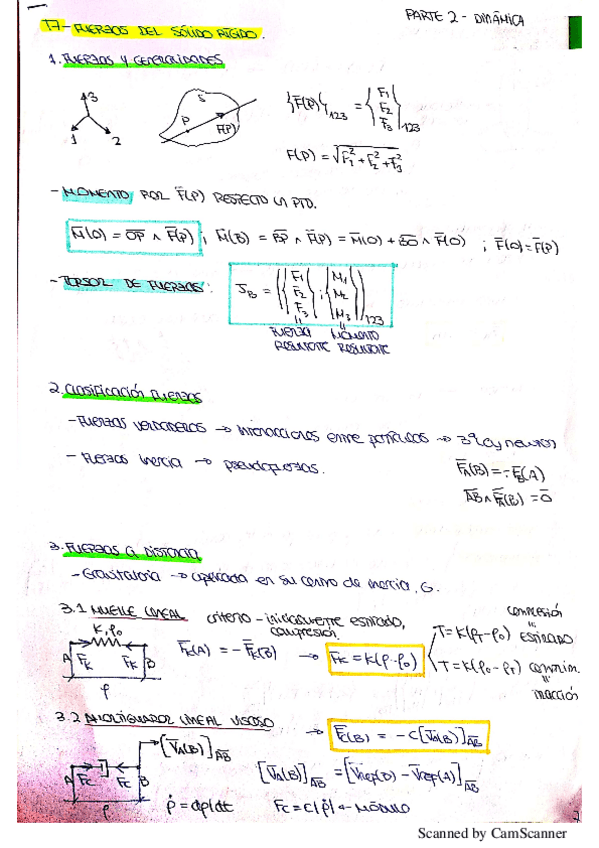 PARTE 2 - DINÁMICA
T7 - FUERZAS DEL SÓLIDO RÍGIDO.
1. FUERZAS Y GENERALIDADES
3
1 2
S
P
F̄(P)
{F̄(P)}₁₂₃ = {F₁ F₂ F₃}₁₂₃
F(P) = √(F₁² + F₂² + F₃²)
- MOMENTO POR F̄(P) RESPECTO UN PTO.
M̄(O) = O̅P̅ ∧ F̄(P) ; M̄(B) = B̅P̅ ∧ F̄(P) = M̄(O) + B̅O̅ ∧ F̄(O) ; F̄(O) = F̄(P)
- TORSOR DE FUERZAS:
J_B = ({F₁ F₂ F₃} ; {M₁ M₂ M₃})₁₂₃
FUERZA MOMENTO
RESULTANTE RESULTANTE
2. Clasificación Fuerzas
- Fuerzas verdaderas → interacciones entre partículas → 3ª Ley Newton
- Fuerzas inercia → pseudofuerzas.
F̄_A(B) = -F̄_B(A)
A̅B̅ ∧ F̄_A(B) = 0̄
3. FUERZAS A DISTANCIA
- Gravitatoria → aplicada en su centro de inercia, G.
3.1 MUELLE LINEAL criterio - inicialmente estirado, compresión.
K, ρ₀
A F̄_K F̄_K B
ρ
F̄_K(A) = -F̄_K(B) → F_K = K(ρ-ρ₀)
compresión
T = K(ρ_T-ρ₀) ESTIRADO
T = K(ρ₀-ρ_T) comprim.
tracción
3.2 AMORTIGUADOR LINEAL VISCOSO → F̄_C(B) = -C[V̄_A(B)]_A̅B̅
[V̄_A(B)]_A̅B̅
A F̄c F̄c B
ρ
[V̄_A(B)]_A̅B̅ = [V̄_REF(B) - V̄_REF(A)]_A̅B̅
ρ̇ = dρ/dt Fc = C|ρ̇| ← MÓDULO
Scanned by CamScanner